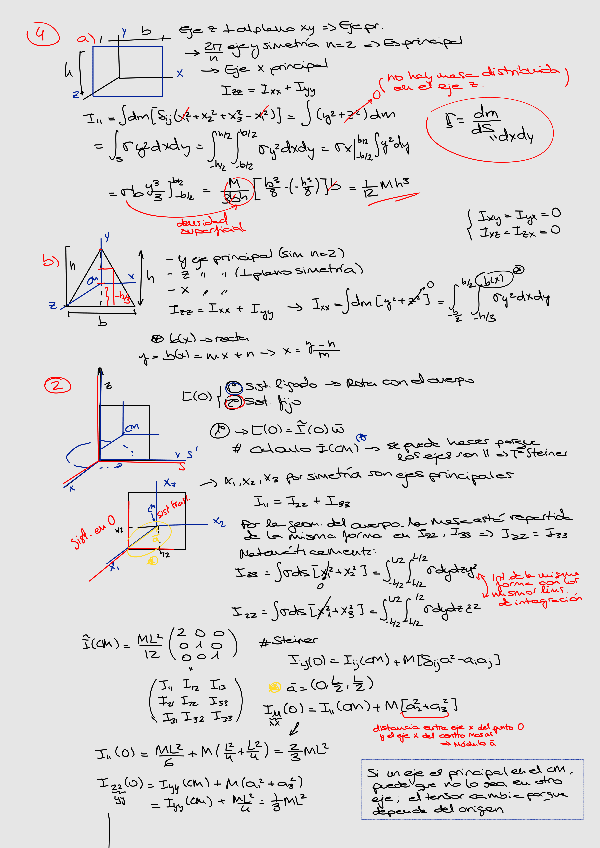 4 a) y b Eje z ⊥ al plano xy => Eje pr.
h x z → 2π/n eje y simetría n=2 => Es principal
→ Eje x principal
Izz = Ixx + Iyy
no hay masa distribuida en el eje z.
I11 = ∫dm[δij(x1² + x2² + x3² - x1²)] = ∫(y² + z²)dm
0
σ = dm/dS " dxdy
= ∫s σy²dxdy = ∫-h/2^h/2 ∫-b/2^b/2 σy²dxdy = σx|-b/2^b/2 ∫y²dy
= σb y³/3 ]-h/2^h/2 = M/3bh [h³/8 - (-h³/8)]b = 1/12 Mh³
densidad superficial
{ Ixy = Iyx = 0
Ixz = Izx = 0
b) h y CM x z b h -h/3
- y eje principal (sim n=2)
- z " " (⊥ plano simetría)
- x " "
Izz = Ixx + Iyy → Ixx = ∫dm[y² + z²] = ∫-b/2^b/2 ∫-h/3^b(x) σy²dxdy
0
⊛ b(x) → recta
y = b(x) = mx + n → x = (y - n)/m
2 z CM x y s' s
L(O) { 1º sist. ligado → Rota con el cuerpo
2º sist fijo
1º → L(O) = Ĩ(O) ω̄
# Calculo Ĩ(CM) → se puede hacer porque los ejes son || → Tª Steiner
→ x1, x2, x3 por simetría son ejes principales
x3 x2 x1 sist. en O sist trans. L/2 L/2
I11 = I22 + I33
Por la geom. del cuerpo, la masa está repartida
de la misma forma en I22, I33 => I22 = I33
Matemáticamente:
I33 = ∫σds[x1² + x2²] = ∫-L/2^L/2 ∫-L/2^L/2 σdydzy²
0
I22 = ∫σds[x1² + x3²] = ∫-L/2^L/2 ∫-L/2^L/2 σdydz z²
Int de la misma forma con los mismos lím. de integración
Ĩ(CM) = ML²/12 (2 0 0
0 1 0
0 0 1)
# Steiner
Iij(O) = Iij(CM) + M[δija² - aiaj]
(I11 I12 I13
I21 I22 I23
I31 I32 I33)
ā = (0, L/2, L/2)
I11(O) = I11(CM) + M[a2² + a3²]
xx
distancia entre eje x del punto O
y el eje x del centro masas
→ módulo ā
I11(O) = ML²/6 + M(L²/4 + L²/4) = 2/3 ML²
I22(O) = Iyy(CM) + M(a1² + a3²)
yy
= Iyy(CM) + ML²/4 = 1/3 ML²
Si un eje es principal en el CM,
puede que no lo sea en otro
eje, el tensor cambia porque
depende del origen